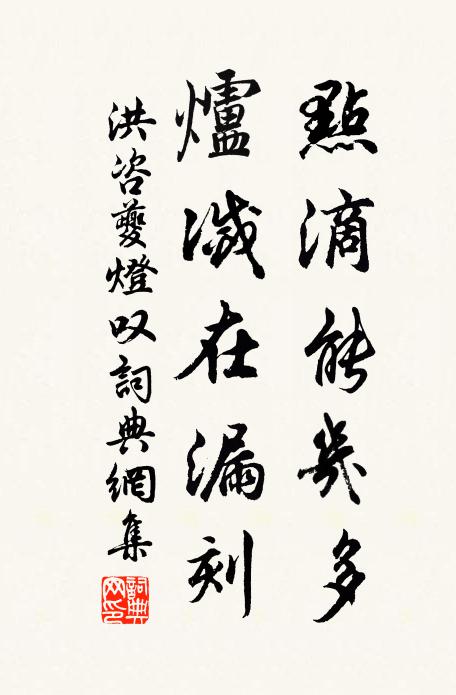 點滴能幾多
爐滅在漏刻
洪咨夔燈叹詞典網集
詞典网印